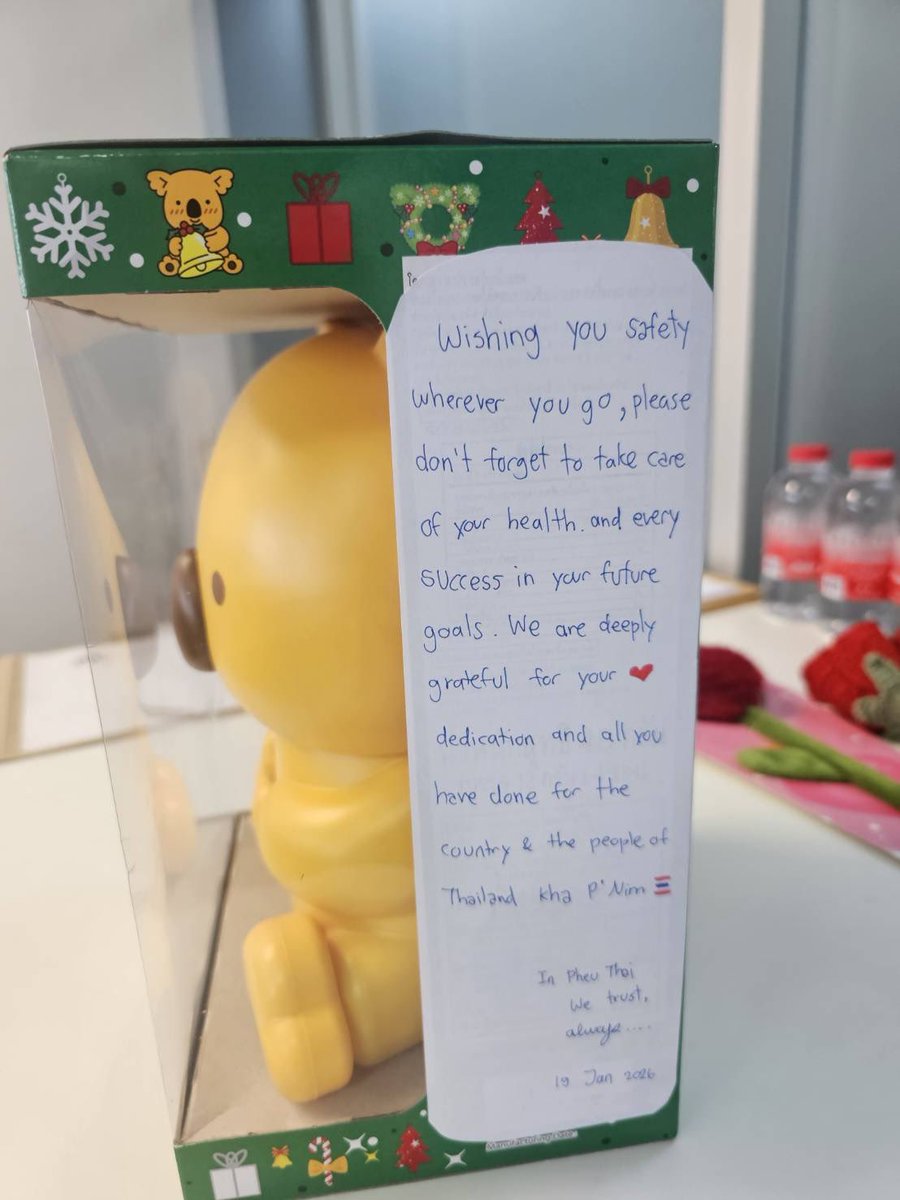 Wishing you safety
wherever you go, please
don't forget to take care
of your health. and every
success in your future
goals. We are deeply
grateful for your ❤
dedication and all you
have done for the
country & the people of
Thailand kha P'Nim 🇹🇭
In Pheu Thai
We trust,
always....
19 Jan 2026
Manufacturing Date